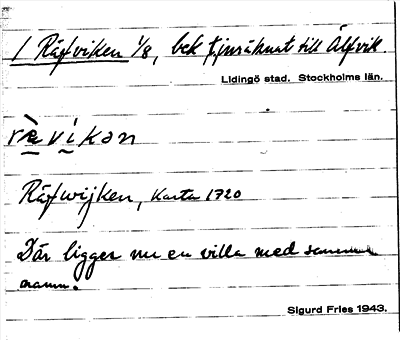 1 Räfviken 1/8, bek tjusräknat till Älfvik.
Lidingö stad. Stockholms län.
rævikan
Räfwijken, Karta 1720
Där ligger nu en villa med samma
namn.
Sigurd Fries 1943.